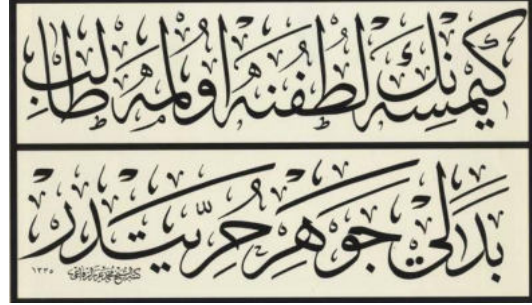 كیمسه نك لطفنه اولمه طالب
بدلی جوهر حریتدر
١٣٣٥